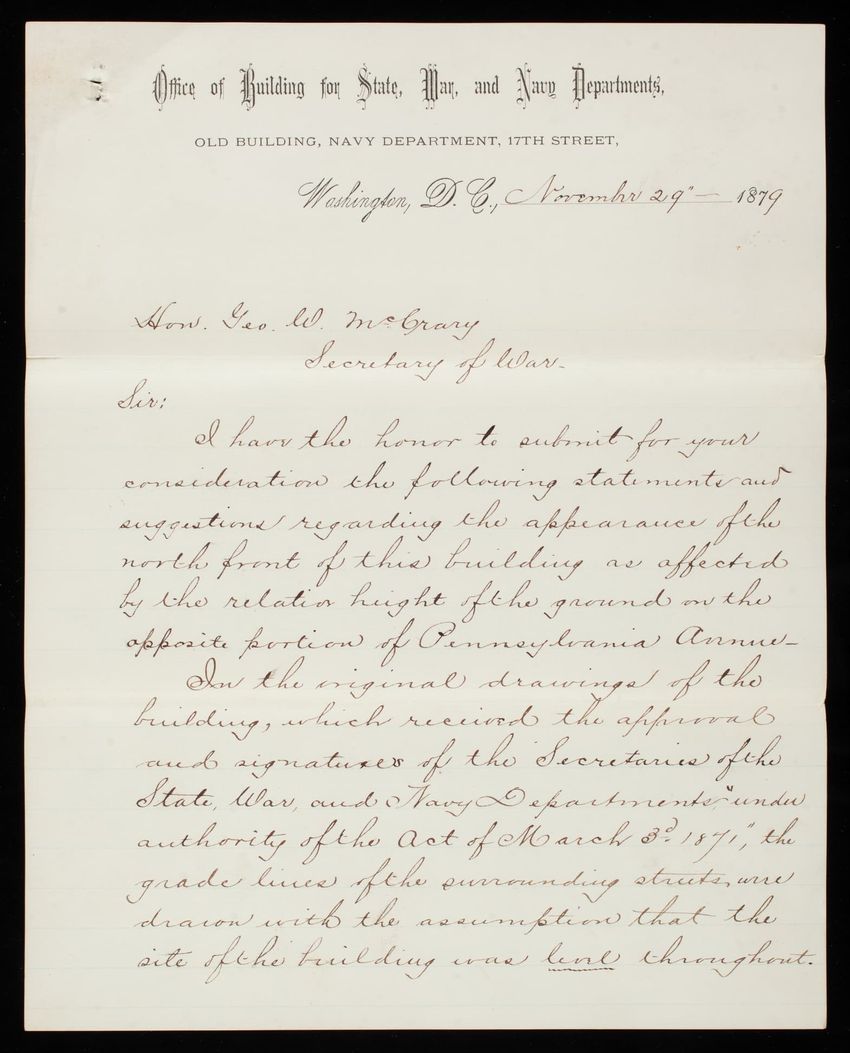 Office of Building for State, War, and Navy Departments,
OLD BUILDING, NAVY DEPARTMENT, 17TH STREET,
Washington, D. C., November 29" — 1879
Hon. Geo. W. McCrary
Secretary of War-
Sir:
I have the honor to submit for your
consideration the following statements and
suggestions regarding the appearance of the
north front of this building as affected
by the relative height of the ground on the
opposite portion of Pennsylvania Avenue-
In the original drawings of the
building, which received the approval
and signatures of the Secretaries of the
State, War, and Navy Departments, "under
authority of the Act of March 3d. 1871", the
grade lines of the surrounding streets, were
drawn with the assumption that the
site of the building was level throughout.